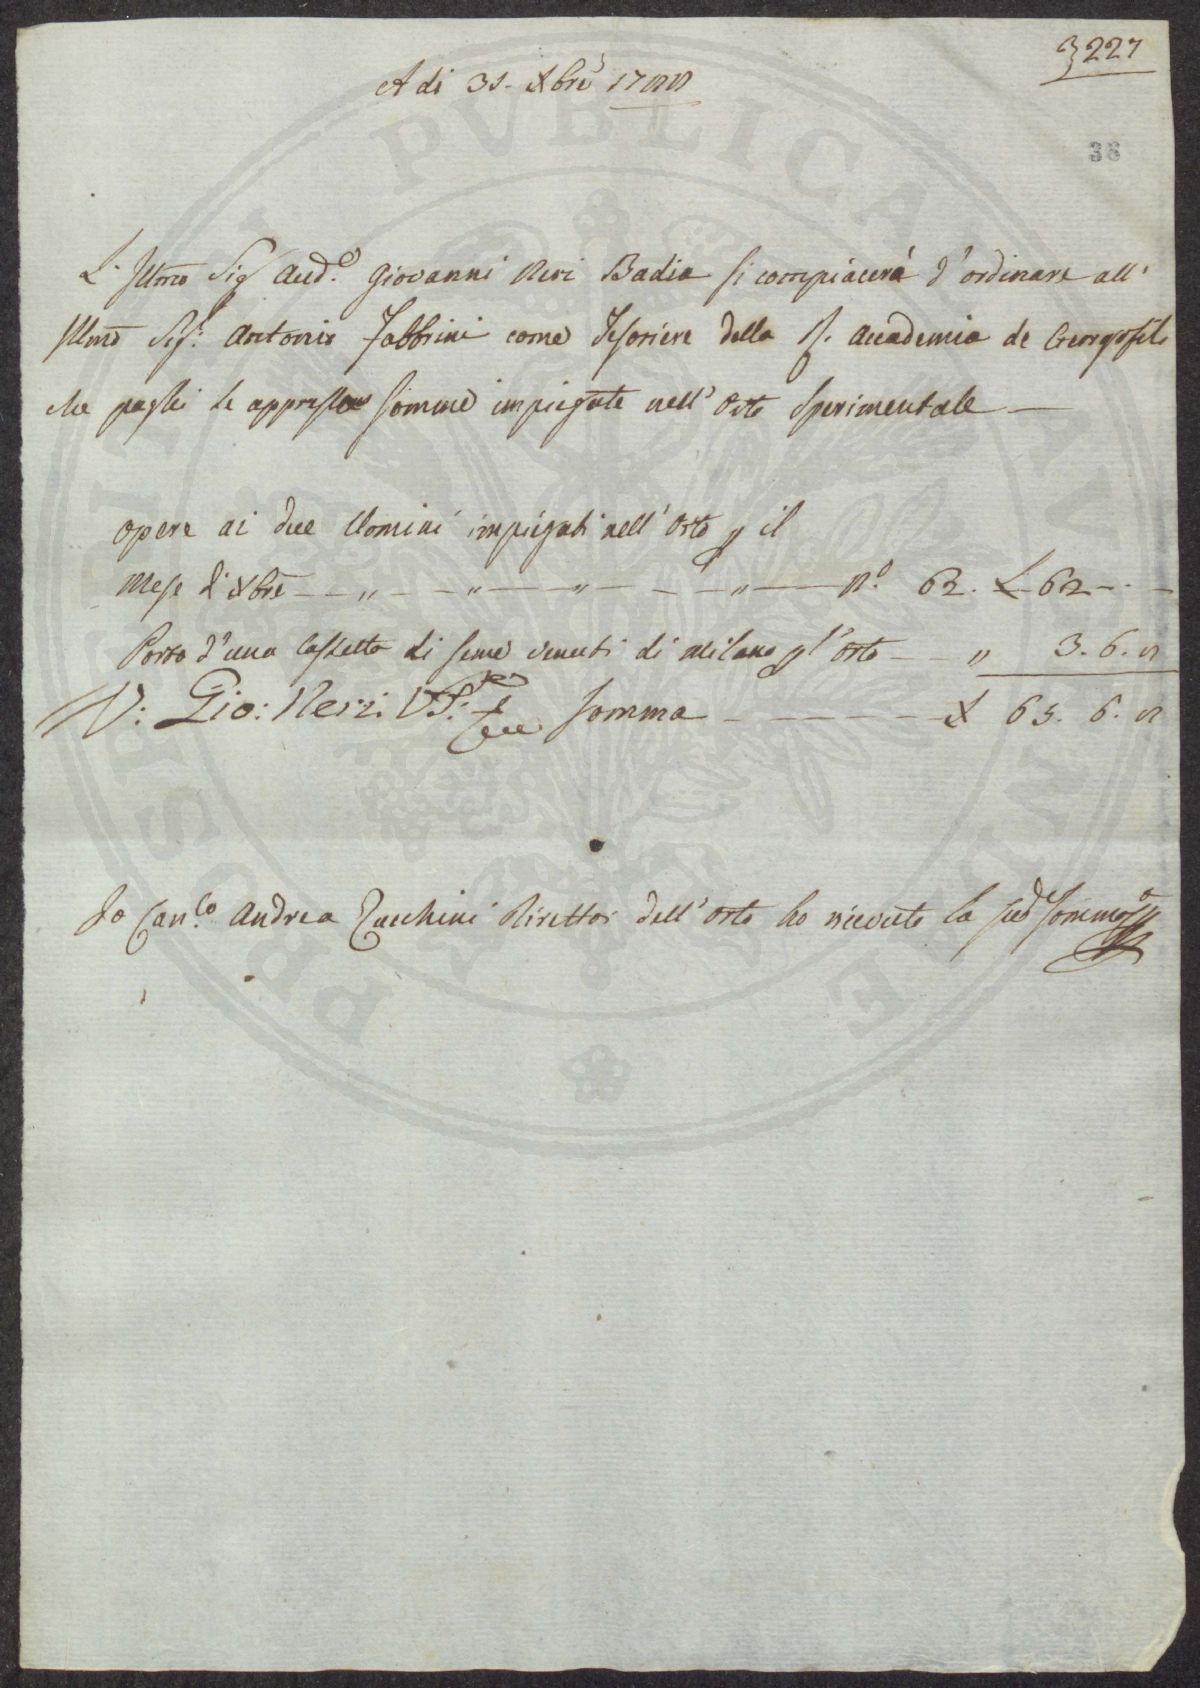 3227
A di 31. Xbre 1788
38
L'Illmo Sig Aud.e Giovanni Neri Badia si compiacerà d'ordinare all'
Illmo Sig.r Antonio Fabbrini come Tesoriere della R. Accademia de Georgofili
che paghi le appresso somme impiegate nell'Orto Sperimentale
Opere ai due Uomini impiegati nell'Orto p il
Mese di Xbre — „ — „ — „ — „ — N.o 62. L 62 — · —
Porto d'una Cassetta di seme venuti di Milano p l'Orto — — „ 3. 6. 8
V: Gio: Neri V.P. Somma — — — — £ 65. 6. 8
Io Can.co Andrea Zucchini Direttor dell'Orto ho ricevuto la sud.a Somma
PVBLICA
PROSPERITATI